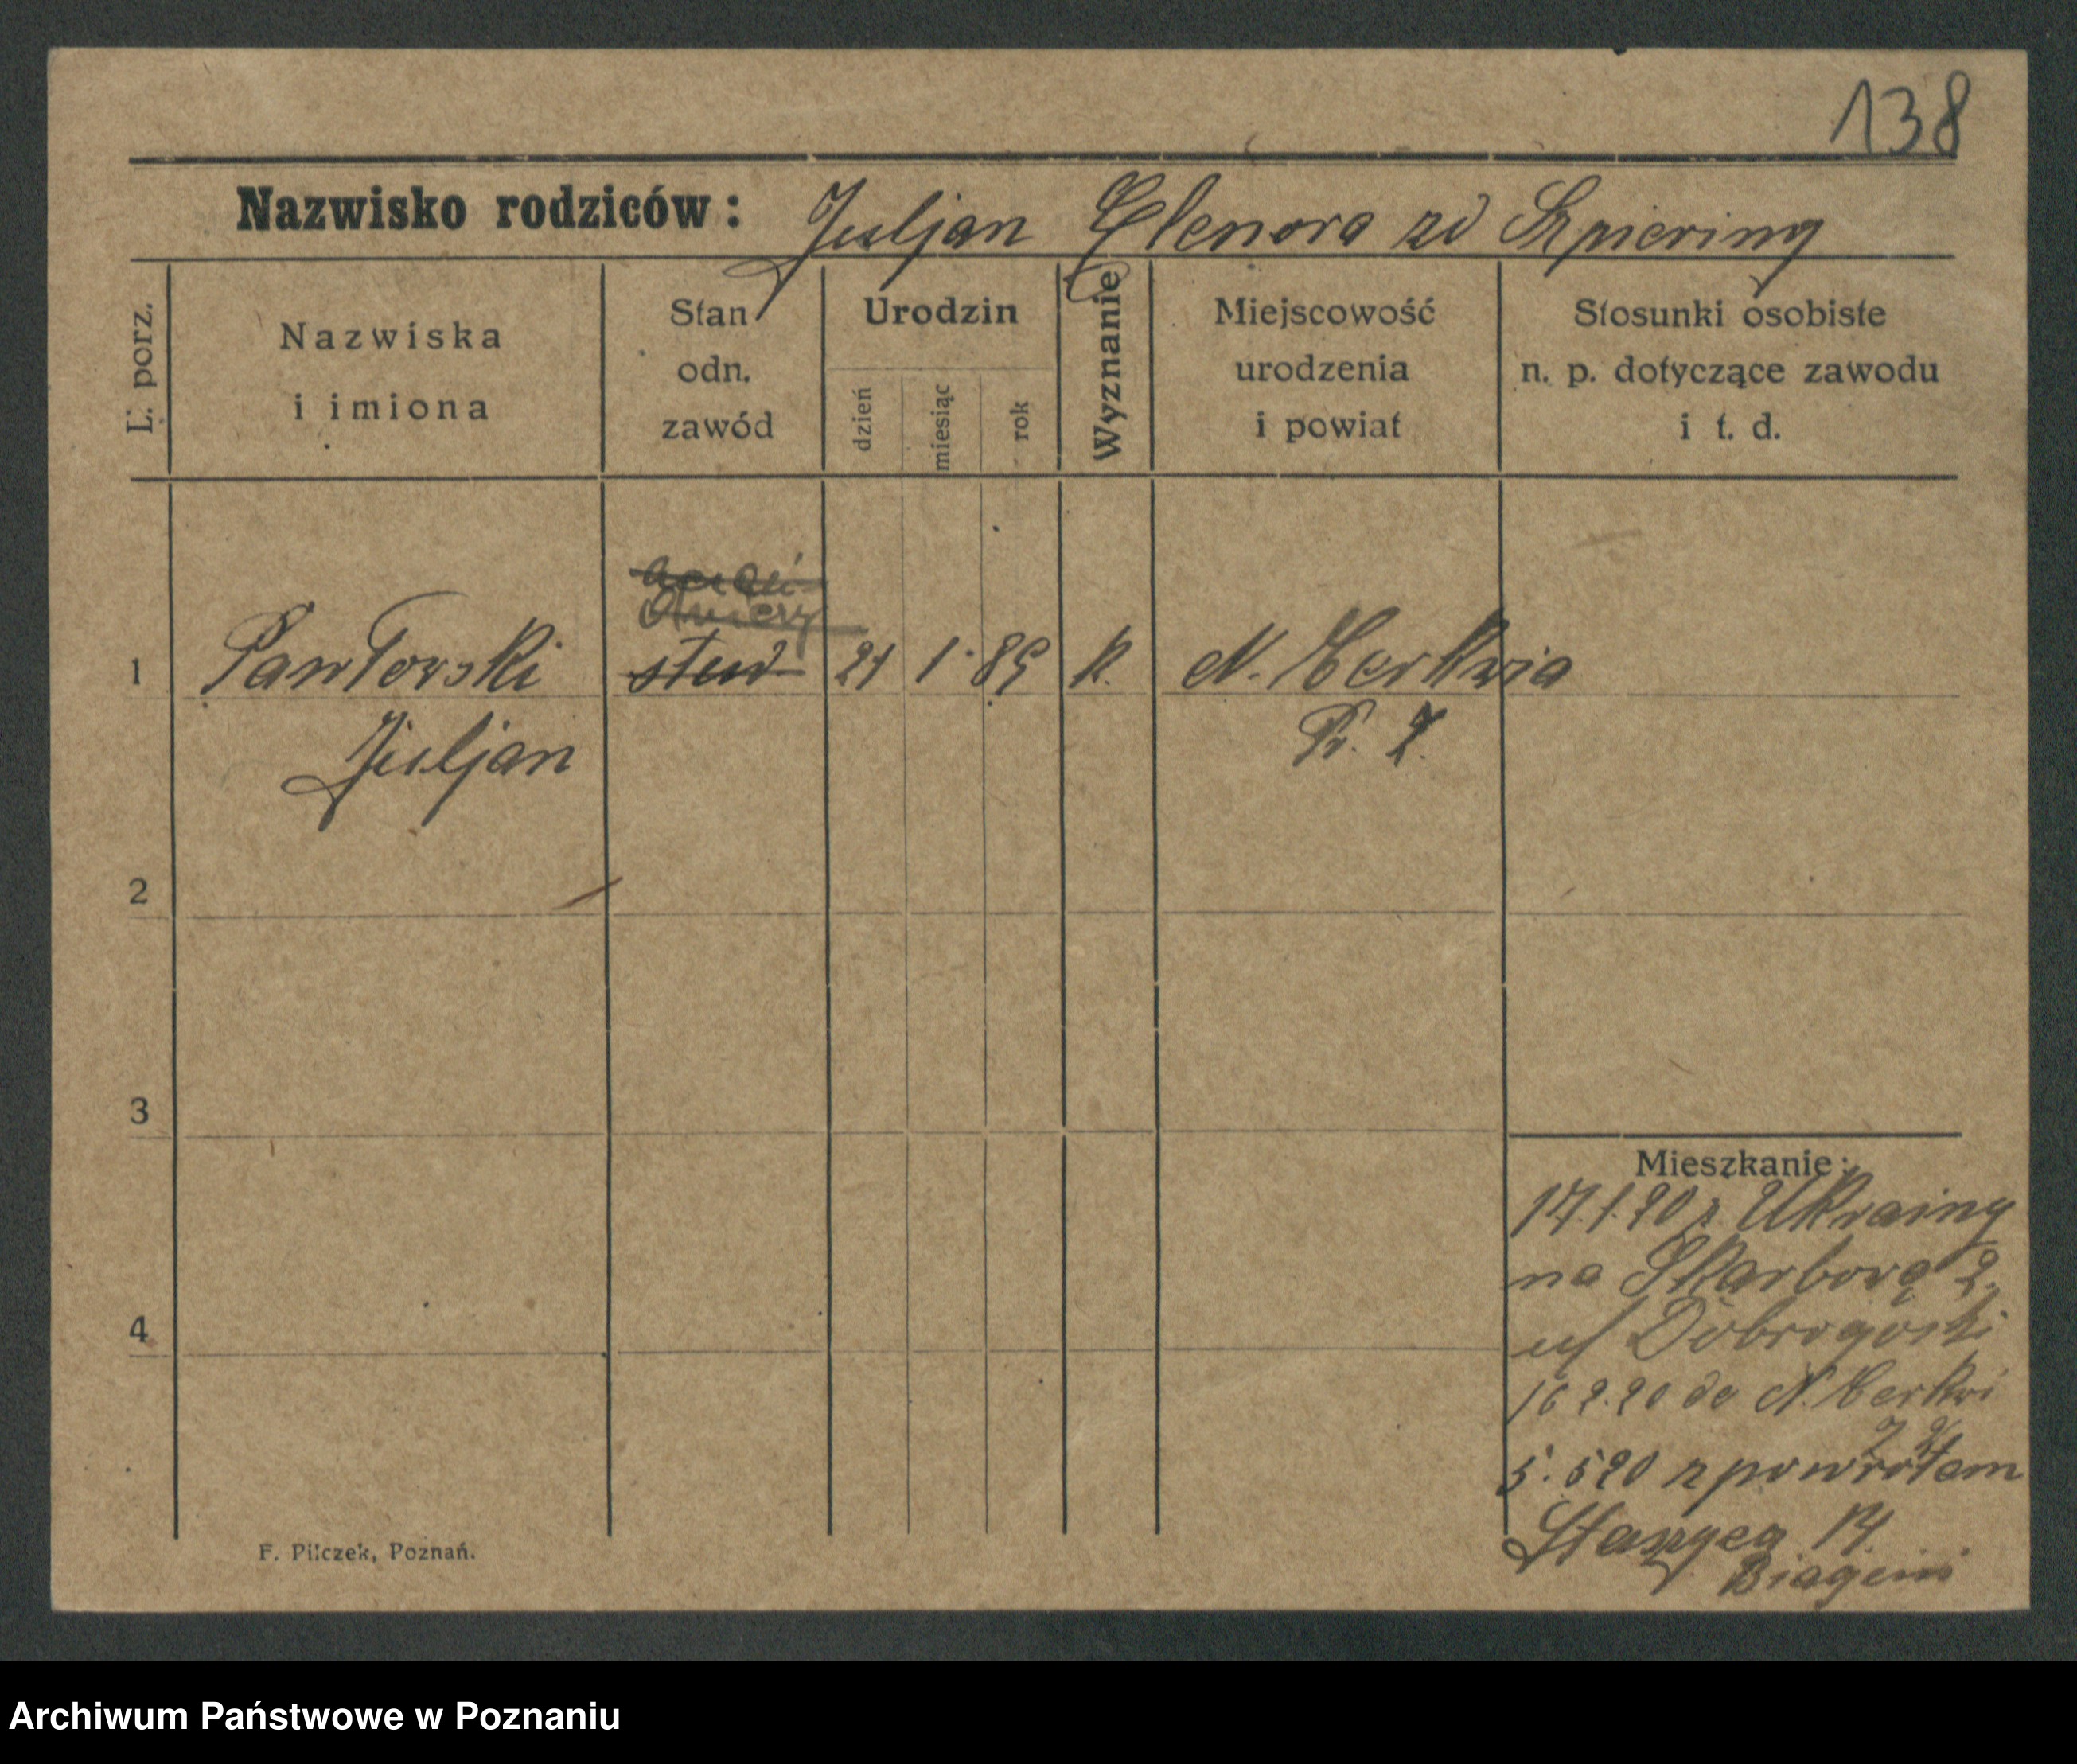 138
Nazwisko rodziców: Juljan Elenora zd Szpiering
L. porz.
Nazwiska
i imiona
Stan
odn.
zawód
Urodzin
dzień
miesiąc
rok
Wyznanie
Miejscowość
urodzenia
i powiat
Stosunki osobiste
n. p. dotyczące zawodu
i t. d.
1 Pawłowski stud 21 1. 89 k. N. Cerkwia
Juljan
2
3
4
Mieszkanie:
17.1.20 z Ukrainy
na Skarbową 2
u/ Dobrogoski
16 2.20 do N. Cerkwi
5.5 20 z powrotem
Staszyca 14.
Biagini
F. Pilczek, Poznań.
Archiwum Państwowe w Poznaniu